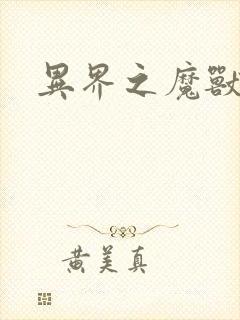 異界之魔獸
黄美真